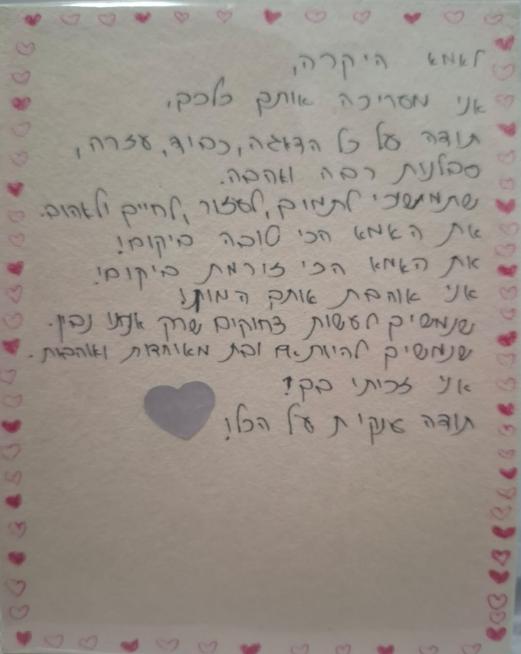 לאמא היקרה,
אני מעריכה אותך כלכך.
תודה על כל הדאגה, כבוד, עזרה,
סבלנות רבה ואהבה.
שתמשיכי לתמוך, לעזור, לחייך ולאהוב.
את האמא הכי טובה ביקום!
את האמא הכי זורמת ביקום!
אני אוהבת אותך המון!
שנמשיך לעשות צחוקים שרק אנחנו נבין.
שנמשיך להיות אם ובת מאוחדות ואוהבות.
אני זכיתי בך!
תודה ענקית על הכל!